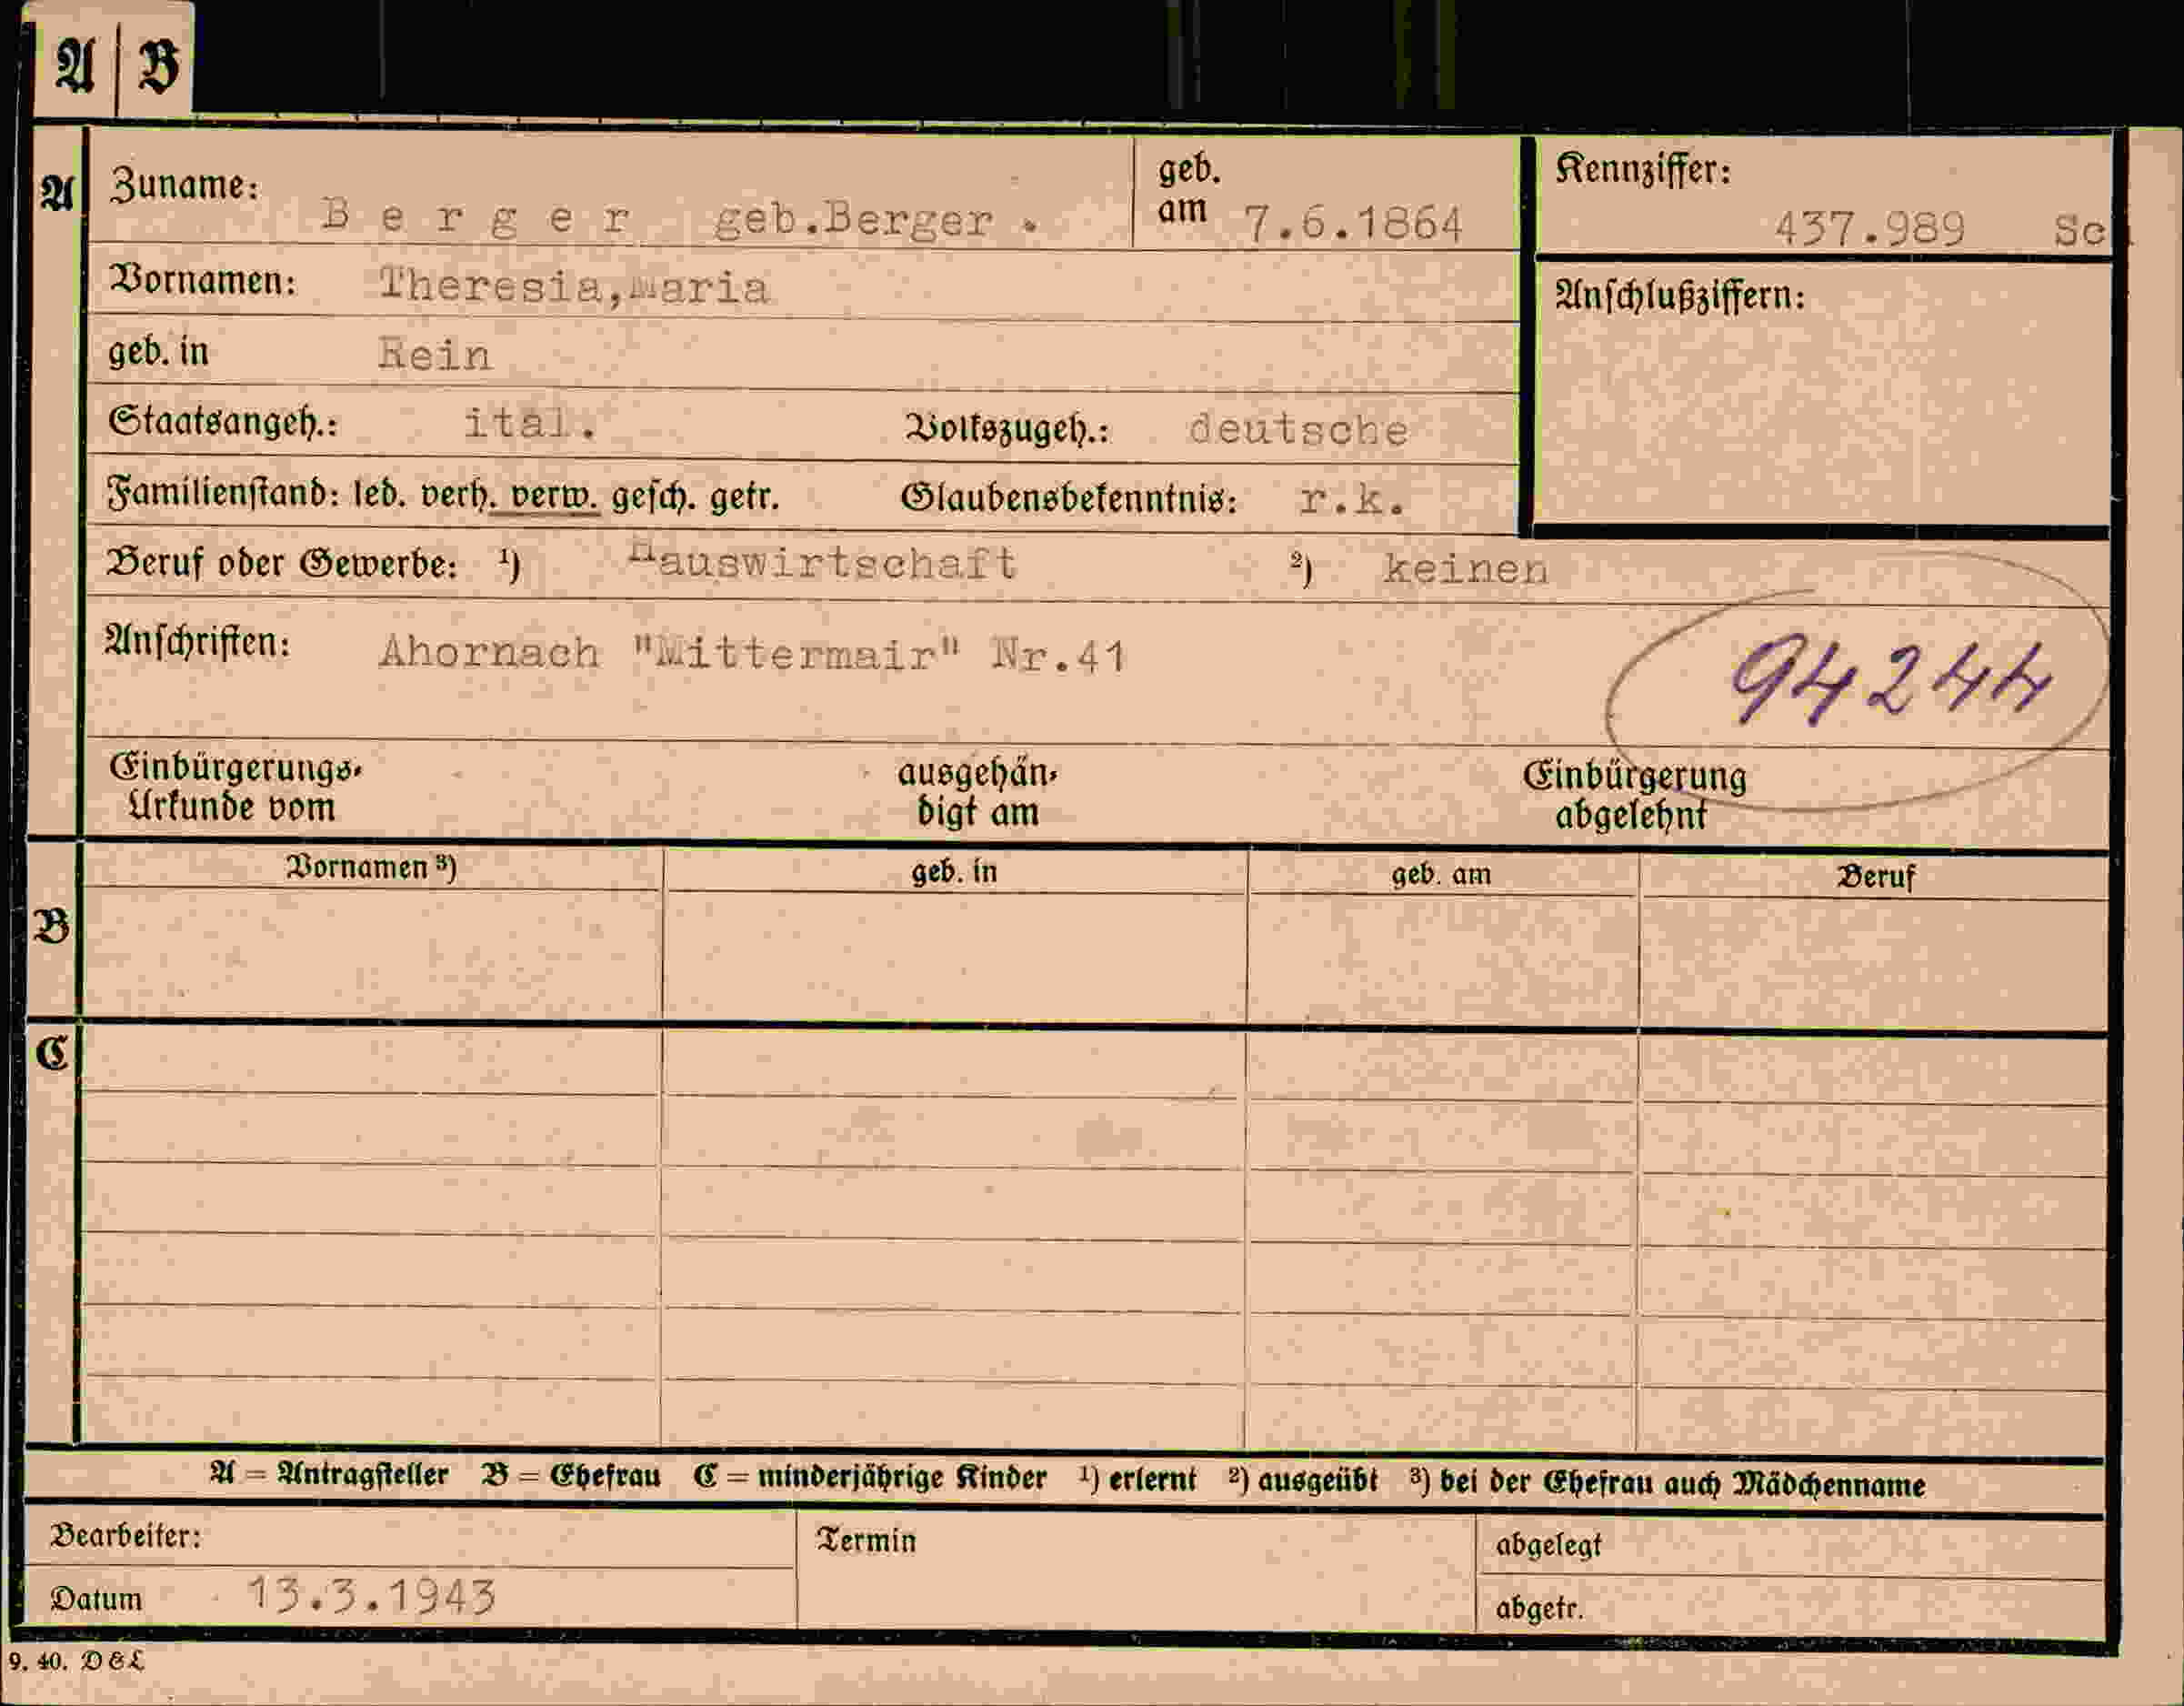 A | B
A Zuname: Berger geb.Berger . geb. am 7.6.1864 Kennziffer: 437.989
Vornamen: Theresia,Maria Anschlußziffern:
geb. in Rein
Staatsangeh.: ital. Volkszugeh.: deutsche
Familienstand: led. verh. verw. gesch. getr. Glaubensbekenntnis: r.k.
Beruf oder Gewerbe: ¹) Hauswirtschaft ²) keinen
Anschriften: Ahornach "Mittermair" Nr.41 94244
Einbürgerungs- ausgehän- Einbürgerung
Urkunde vom digt am abgelehnt
Vornamen ³) geb. in geb. am Beruf
B
C
A = Antragsteller B = Ehefrau C = minderjährige Kinder ¹) erlernt ²) ausgeübt ³) bei der Ehefrau auch Mädchenname
Bearbeiter: Termin abgelegt
Datum 13.3.1943 abgetr.
9. 40. D & L